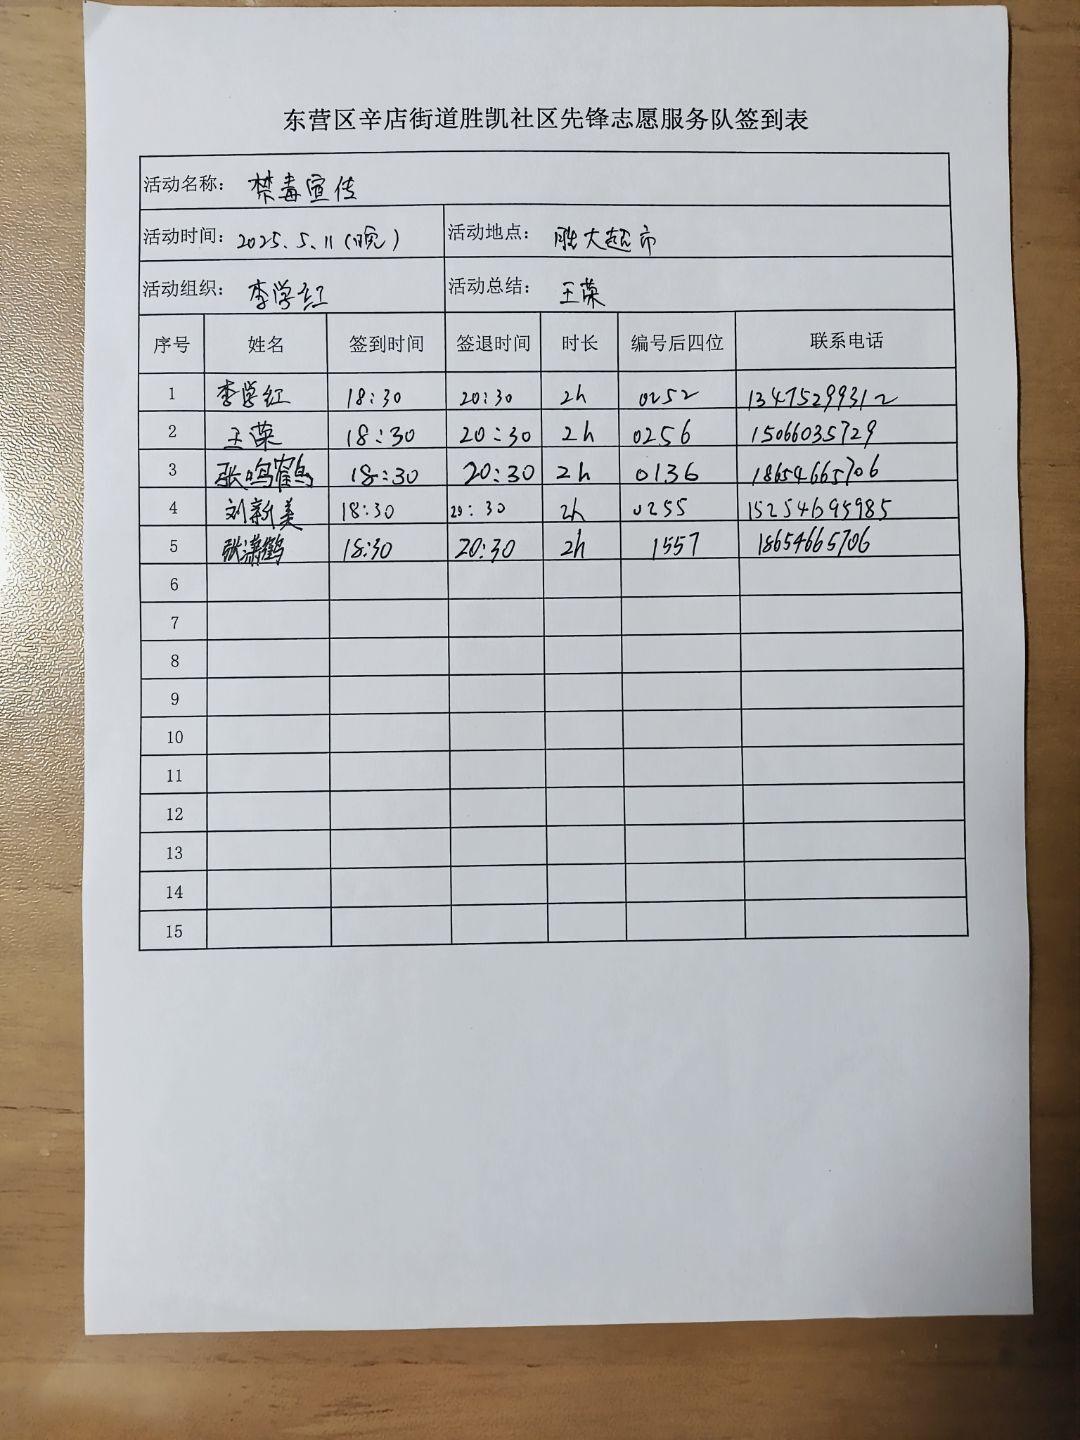 东营区辛店街道胜凯社区先锋志愿服务队签到表
活动名称： 禁毒宣传
活动时间： 2025.5.11(晚) 活动地点： 胜大超市
活动组织： 李学红 活动总结： 王荣
序号 姓名 签到时间 签退时间 时长 编号后四位 联系电话
1 李学红 18:30 20:30 2h 0252 13475299312
2 王荣 18:30 20:30 2h 0256 15066035729
3 张鸣鹤 18:30 20:30 2h 0136 18654665706
4 刘新美 18:30 20:30 2h 0255 15254695985
5 张潇鹤 18:30 20:30 2h 1557 18654665706
6
7
8
9
10
11
12
13
14
15